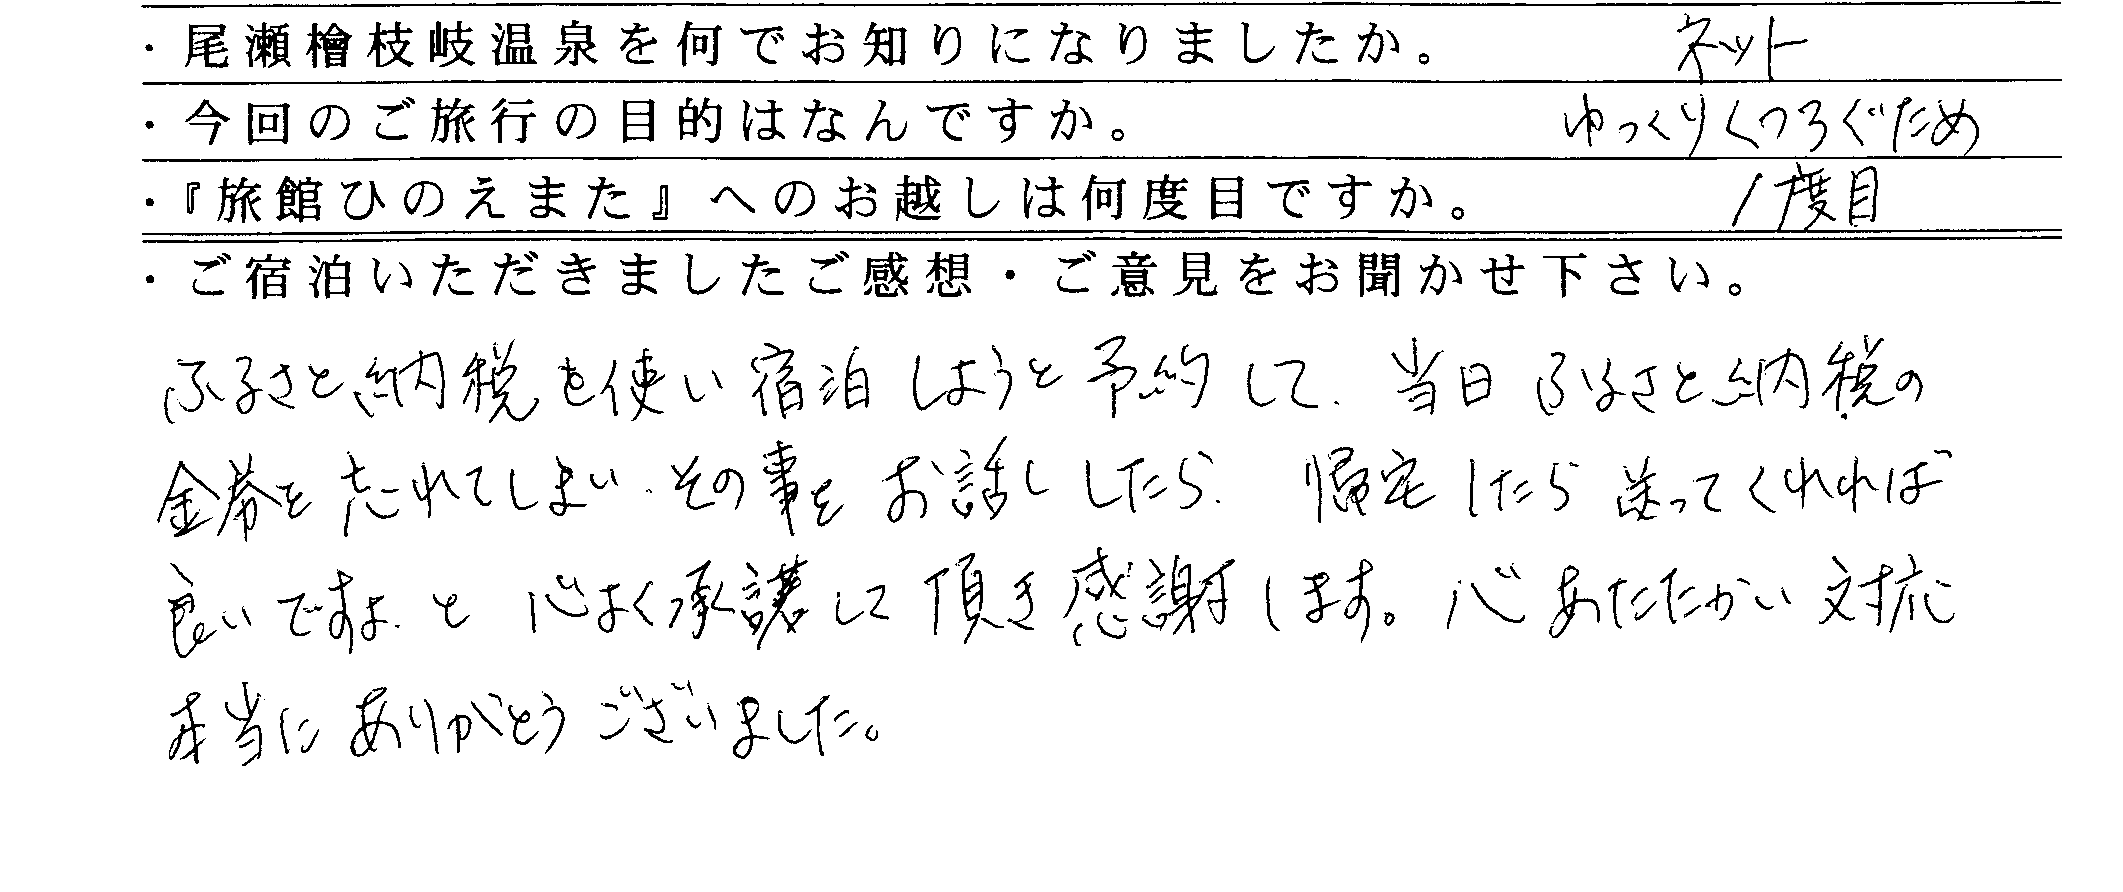 ・尾瀬檜枝岐温泉を何でお知りになりましたか。 ネット
・今回のご旅行の目的はなんですか。 ゆっくりくつろぐため
・『旅館ひのえまた』へのお越しは何度目ですか。 1度目
・ご宿泊いただきましたご感想・ご意見をお聞かせ下さい。
ふるさと納税を使い宿泊しようと予約して、当日ふるさと納税の
金券を忘れてしまい、その事をお話ししたら、帰宅したら送ってくれれば
良いですよ、と心よく承諾して頂き感謝します。心あたたかい対応
本当にありがとうございました。